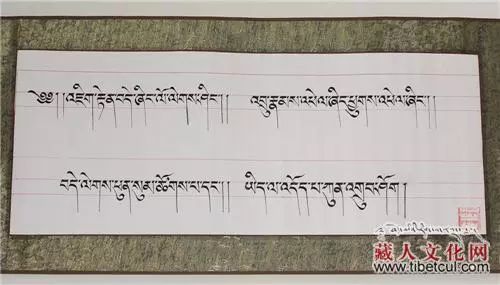 ༄༅། །འཇིག་རྟེན་བདེ་ཞིང་ལོ་ལེགས་ཤིང་། ། འབྲུ་རྣམས་འཕེལ་ཞིང་ཕྱུགས་འཕེལ་ཞིང་། །
བདེ་ལེགས་ཕུན་སུམ་ཚོགས་པ་དང་། ། ཡིད་ལ་འདོད་པ་ཀུན་འགྲུབ་ཤོག །
藏人文化网
www.tibetcul.com